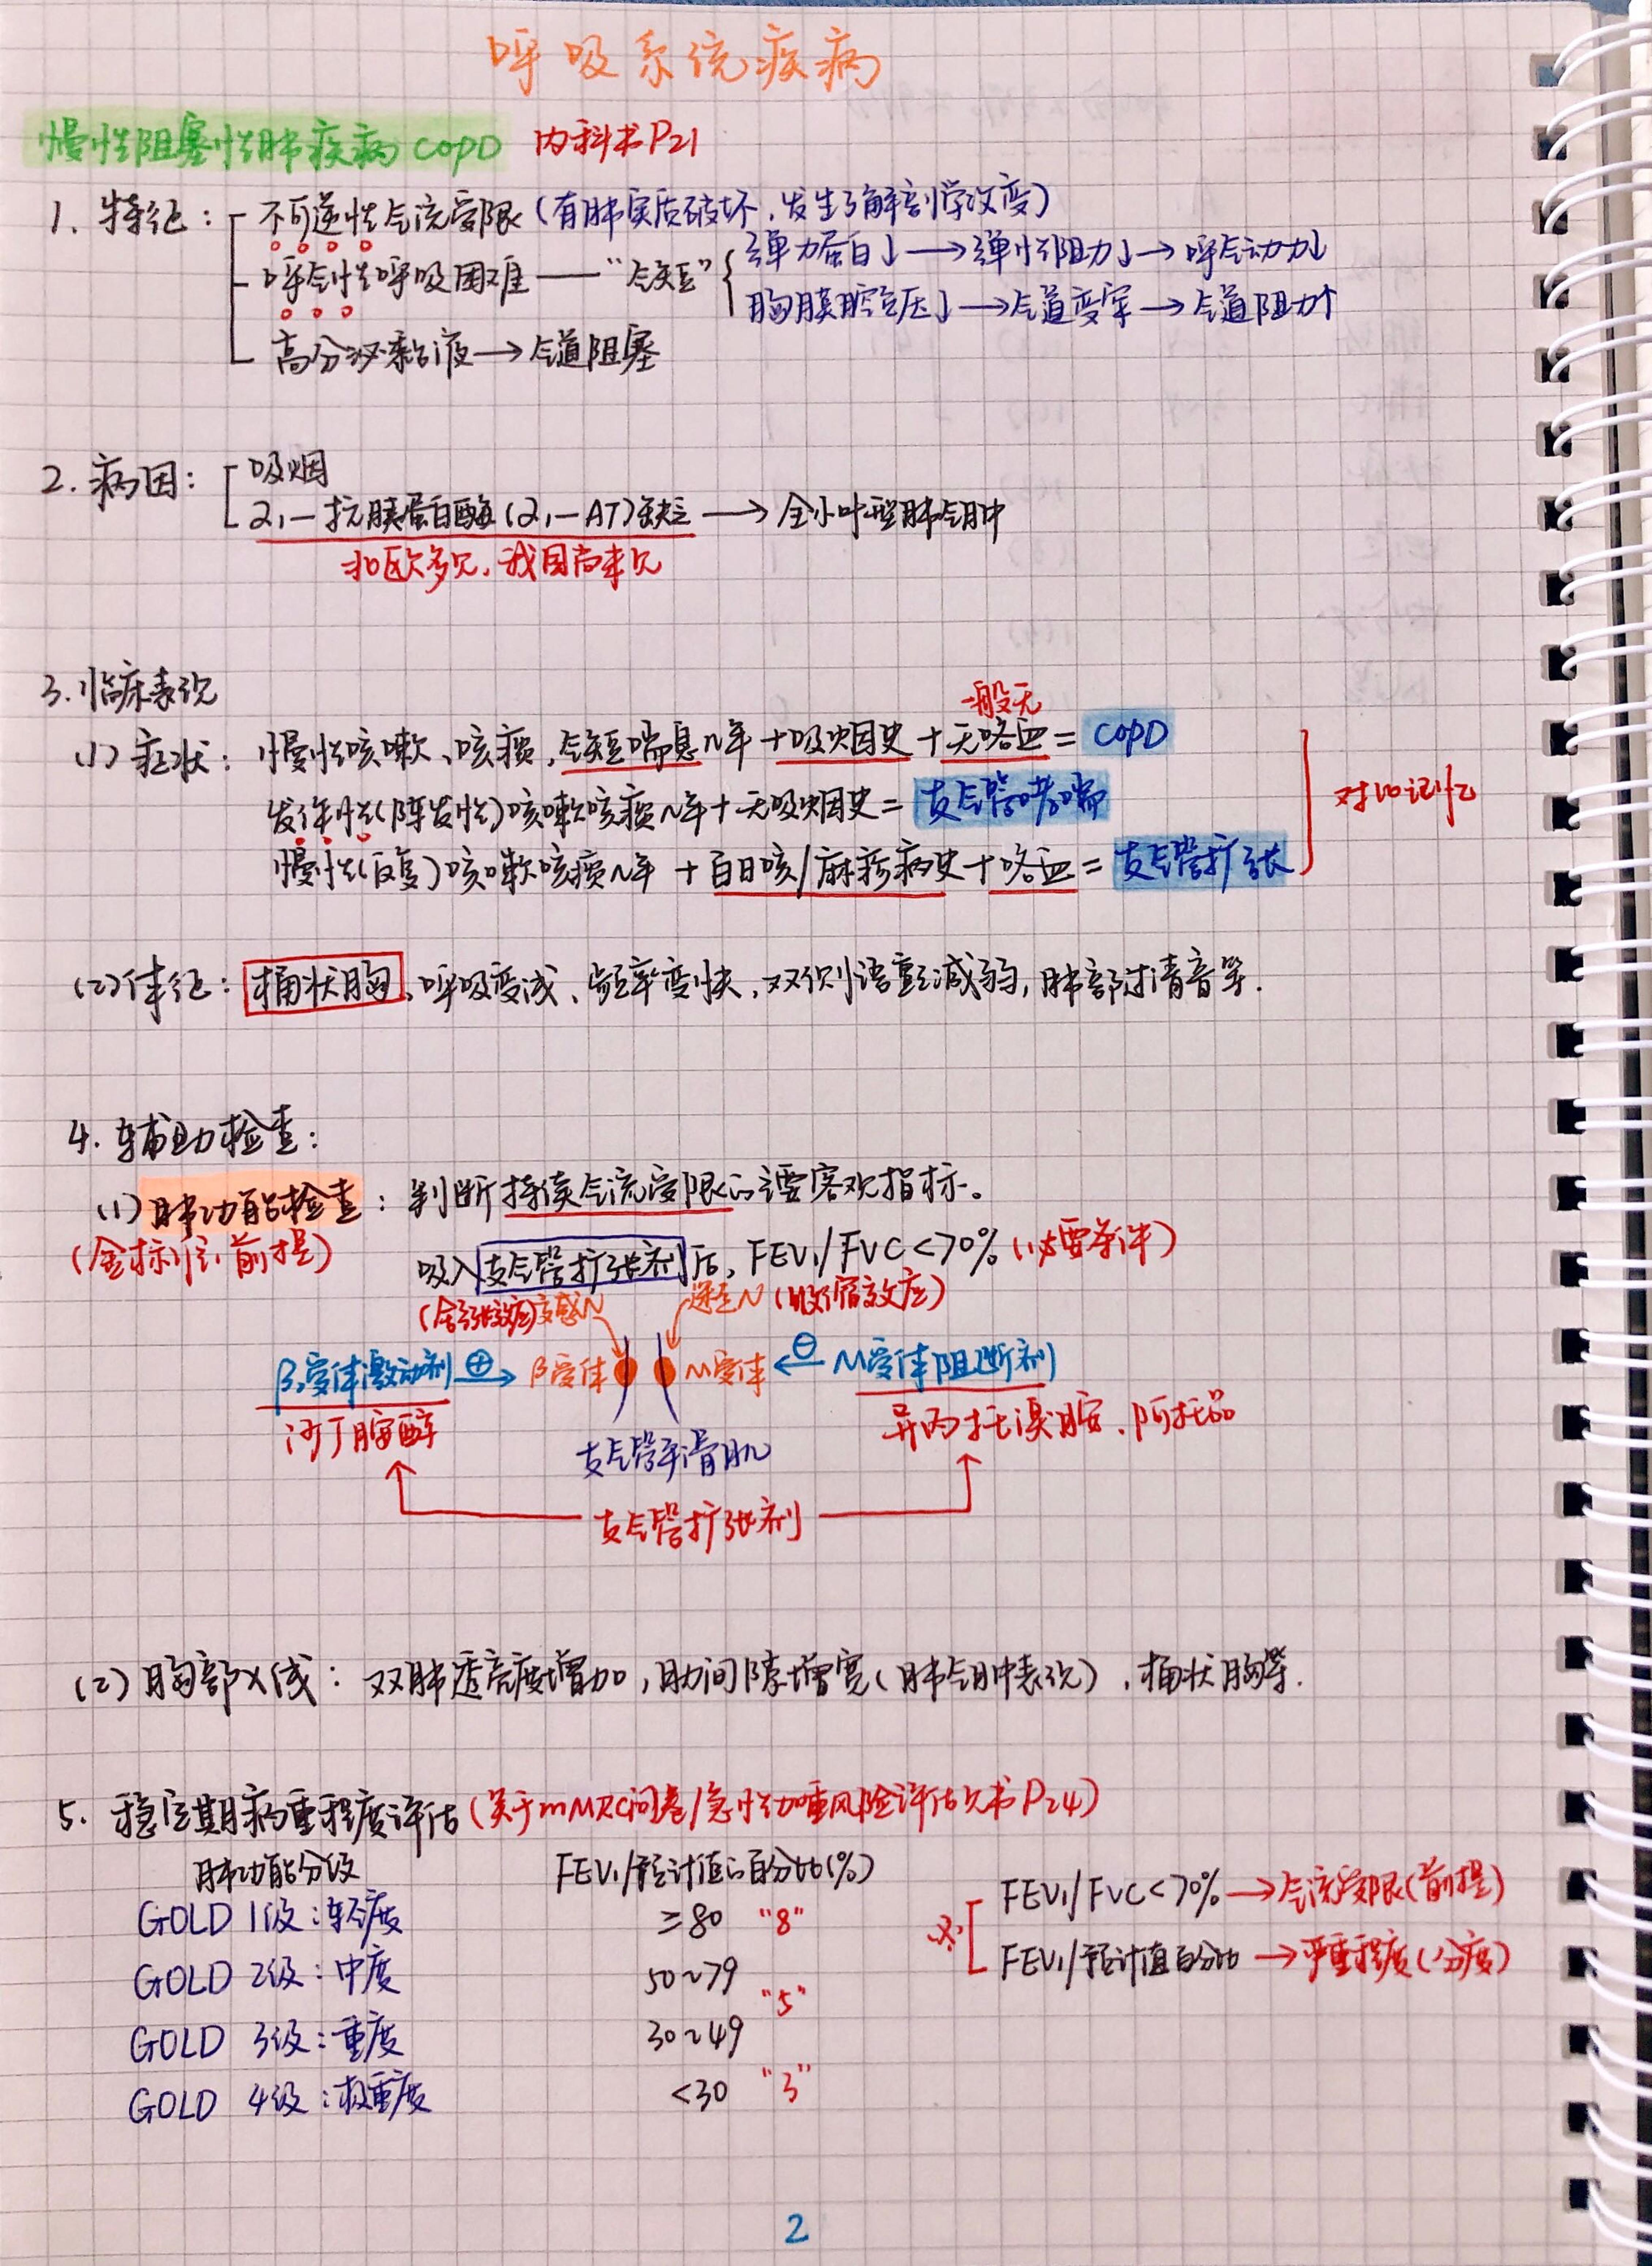 呼吸系统疾病
慢性阻塞性肺疾病 COPD 内科书P21
1. 特征：不可逆性气流受限（有肺实质破坏，发生了解剖学改变）
呼气性呼吸困难——“气短” 弹力蛋白↓→弹性阻力↓→呼气动力↓
胸膜腔负压↓→气道变窄→气道阻力↑
高分泌黏液→气道阻塞
2. 病因：吸烟
α₁-抗胰蛋白酶（α₁-AT）缺乏→全小叶型肺气肿
北欧多见，我国尚未见
3. 临床表现
一般无
(1) 症状：慢性咳嗽、咳痰，气短喘息n年+吸烟史+无咯血= COPD
发作性（阵发性）咳嗽咳痰n年+无吸烟史=支气管哮喘
对比记忆
慢性（反复）咳嗽咳痰n年+百日咳/麻疹病史+咯血=支气管扩张
(2) 体征：桶状胸、呼吸变浅、频率变快，双侧语颤减弱，肺部过清音等.
4. 辅助检查：
(1) 肺功能检查：判断持续气流受限的主要客观指标。
（金标准，前提） 吸入支气管扩张剂后，FEV₁/FVC<70%（必要条件）
（舒张效应）交感N 迷走N（收缩效应）
β₂受体激动剂 ⊕→ β受体 M受体 ←⊖ M受体阻断剂
沙丁胺醇 异丙托溴胺、阿托品
支气管平滑肌
支气管扩张剂
(2) 胸部X线：双肺透亮度增加，肋间隙增宽（肺气肿表现），桶状胸等.
5. 稳定期病重程度评估（关于mMRC问卷/急性加重风险评估见书P24）
肺功能分级 FEV₁/预计值的百分比(%)
GOLD 1级：轻度 ≥80 “8”
GOLD 2级：中度 50~79
“5”
GOLD 3级：重度 30~49
GOLD 4级：极重度 <30 “3”
※ FEV₁/FVC<70%→气流受限（前提）
FEV₁/预计值百分比→严重程度（分度）
2